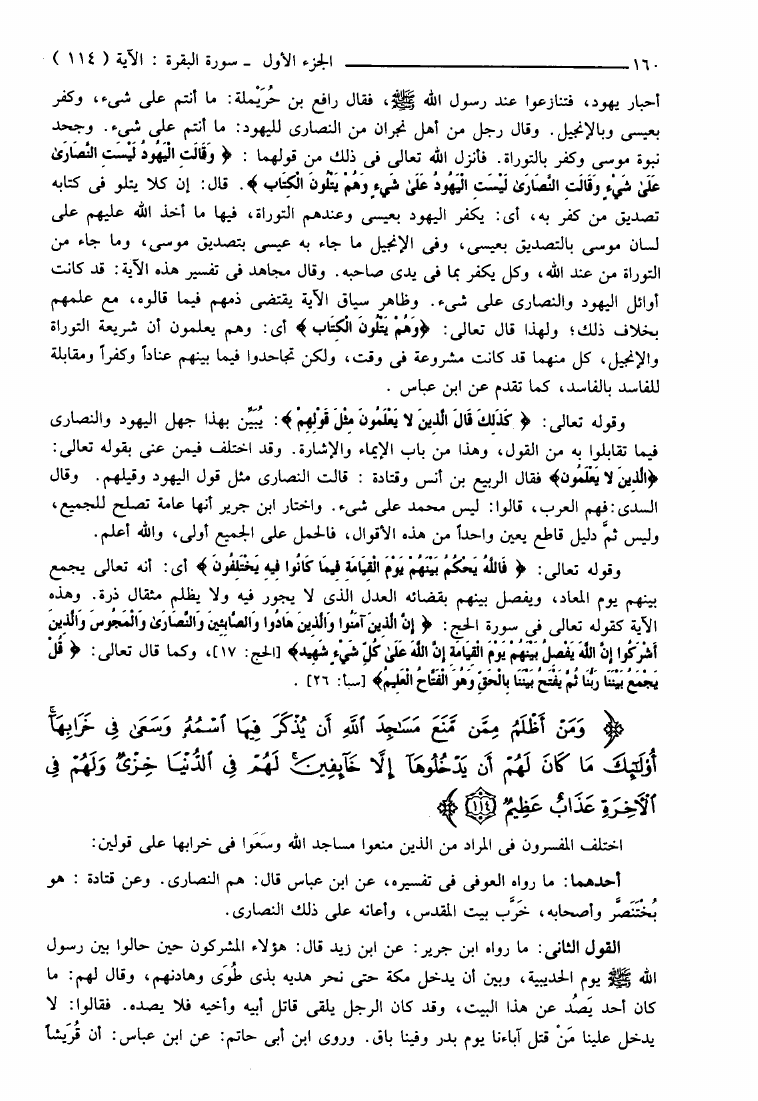 ١٦٠ ــــــــــــــــــــــــــــــــــــــ الجزء الأول ـ سورة البقرة : الآية ( ١١٤ )
أحبار يهود، فتنازعوا عند رسول الله ﷺ، فقال رافع بن حُرَيْملة: ما أنتم على شىء، وكفر
بعيسى وبالإنجيل. وقال رجل من أهل نجران من النصارى لليهود: ما أنتم على شىء. وجحد
نبوة موسى وكفر بالتوراة. فأنزل الله تعالى فى ذلك من قولهما : ﴿ وَقَالَتِ الْيَهُودُ لَيْسَتِ النَّصَارَىٰ
عَلَىٰ شَيْءٍ وَقَالَتِ النَّصَارَىٰ لَيْسَتِ الْيَهُودُ عَلَىٰ شَيْءٍ وَهُمْ يَتْلُونَ الْكِتَابَ ﴾. قال: إن كلا يتلو فى كتابه
تصديق من كفر به، أى: يكفر اليهود بعيسى وعندهم التوراة، فيها ما أخذ الله عليهم على
لسان موسى بالتصديق بعيسى، وفى الإنجيل ما جاء به عيسى بتصديق موسى، وما جاء من
التوراة من عند الله، وكل يكفر بما فى يدى صاحبه. وقال مجاهد فى تفسير هذه الآية: قد كانت
أوائل اليهود والنصارى على شىء. وظاهر سياق الآية يقتضى ذمهم فيما قالوه، مع علمهم
بخلاف ذلك؛ ولهذا قال تعالى: ﴿وَهُمْ يَتْلُونَ الْكِتَابَ ﴾ أى: وهم يعلمون أن شريعة التوراة
والإنجيل، كل منهما قد كانت مشروعة فى وقت، ولكن تجاحدوا فيما بينهم عناداً وكفراً ومقابلة
للفاسد بالفاسد، كما تقدم عن ابن عباس .
وقوله تعالى: ﴿ كَذَلِكَ قَالَ الَّذِينَ لا يَعْلَمُونَ مِثْلَ قَوْلِهِمْ ﴾: يُبَيِّن بهذا جهل اليهود والنصارى
فيما تقابلوا به من القول، وهذا من باب الإيماء والإشارة. وقد اختلف فيمن عنى بقوله تعالى:
﴿الَّذِينَ لا يَعْلَمُونَ﴾ فقال الربيع بن أنس وقتادة : قالت النصارى مثل قول اليهود وقيلهم. وقال
السدى:فهم العرب، قالوا: ليس محمد على شىء. واختار ابن جرير أنها عامة تصلح للجميع،
وليس ثمَّ دليل قاطع يعين واحداً من هذه الأقوال، فالحمل على الجميع أولى، والله أعلم.
وقوله تعالى: ﴿ فَاللَّهُ يَحْكُمُ بَيْنَهُمْ يَوْمَ الْقِيَامَةِ فِيمَا كَانُوا فِيهِ يَخْتَلِفُونَ ﴾ أى: أنه تعالى يجمع
بينهم يوم المعاد، ويفصل بينهم بقضائه العدل الذى لا يجور فيه ولا يظلم مثقال ذرة. وهذه
الآية كقوله تعالى فى سورة الحج: ﴿ إِنَّ الَّذِينَ آمَنُوا وَالَّذِينَ هَادُوا وَالصَّابِئِينَ وَالنَّصَارَىٰ وَالْمَجُوسَ وَالَّذِينَ
أَشْرَكُوا إِنَّ اللَّهَ يَفْصِلُ بَيْنَهُمْ يَوْمَ الْقِيَامَةِ إِنَّ اللَّهَ عَلَىٰ كُلِّ شَيْءٍ شَهِيدٌ﴾ [الحج: ١٧]، وكما قال تعالى: ﴿ قُلْ
يَجْمَعُ بَيْنَنَا رَبُّنَا ثُمَّ يَفْتَحُ بَيْنَنَا بِالْحَقِّ وَهُوَ الْفَتَّاحُ الْعَلِيمُ﴾ [سبأ: ٢٦] .
﴿ وَمَنْ أَظْلَمُ مِمَّن مَّنَعَ مَسَٰجِدَ ٱللَّهِ أَن يُذْكَرَ فِيهَا ٱسْمُهُۥ وَسَعَىٰ فِى خَرَابِهَآ ۚ
أُو۟لَٰٓئِكَ مَا كَانَ لَهُمْ أَن يَدْخُلُوهَآ إِلَّا خَآئِفِينَ ۚ لَهُمْ فِى ٱلدُّنْيَا خِزْىٌ وَلَهُمْ فِى
ٱلْأَخِرَةِ عَذَابٌ عَظِيمٌ ١١٤ ﴾
اختلف المفسرون فى المراد من الذين منعوا مساجد الله وسَعَوا فى خرابها على قولين:
أحدهما: ما رواه العوفى فى تفسيره، عن ابن عباس قال: هم النصارى. وعن قتادة : هو
بُخْتَنَصَّر وأصحابه، خَرَّب بيت المقدس، وأعانه على ذلك النصارى.
القول الثانى: ما رواه ابن جرير: عن ابن زيد قال: هؤلاء المشركون حين حالوا بين رسول
الله ﷺ يوم الحديبية، وبين أن يدخل مكة حتى نحر هديه بذى طُوَى وهادنهم، وقال لهم: ما
كان أحد يَصُد عن هذا البيت، وقد كان الرجل يلقى قاتل أبيه وأخيه فلا يصده. فقالوا: لا
يدخل علينا مَنْ قتل آباءنا يوم بدر وفينا باق. وروى ابن أبى حاتم: عن ابن عباس: أن قُرَيشاً